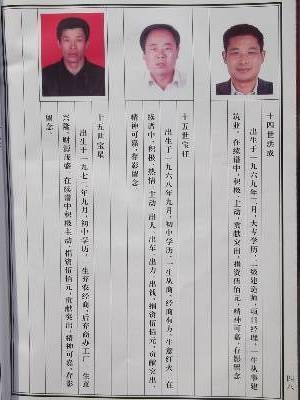 十四世洪成
出生于一九六九年二月，大专学历，二级建造师，项目经理，一生从事建
筑业，在续谱中，积极、主动，贡献突出，捐资伍佰元，精神可嘉，存影留念
十五世宝柱
出生于一九六八年九月，初中学历，一生从商，经商有方，生意红火，在
续谱中，积极、热情、主动，出人、出车、出力、出钱，捐资伍佰元，贡献突出，
精神可嘉，存影留念
十五世宝星
出生于一九七二年九月，初中学历，生弃农经商，后弃商办工厂，生意
兴隆，财源茂盛，在续谱中积极主动，捐资伍佰元，贡献突出，精神可嘉，存影
留念。
四八